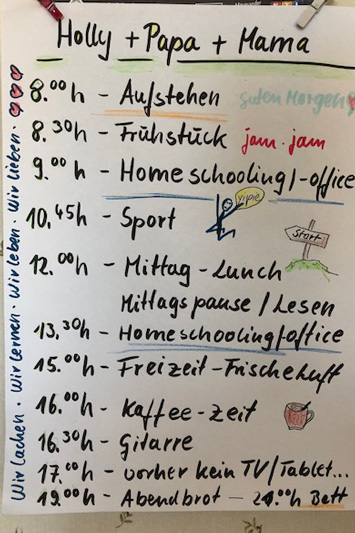 Holly + Papa + Mama
8.00h - Aufstehen guten Morgen
8.30h - Frühstück jam. jam
9.00h - Homeschooling/-office
yipie
10.45h - Sport
Start
12.00h - Mittag-Lunch
Mittagspause / Lesen
13.30h - Homeschooling/office
15.00h - Freizeit-Frischeluft
16.00h - Kaffee-Zeit
16.30h - Gitarre
17.00h - vorher kein TV/Tablet...
19.00h - Abendbrot - 21.00h Bett
Wir Lachen · Wir lernen · Wir leben · Wir lieben ·